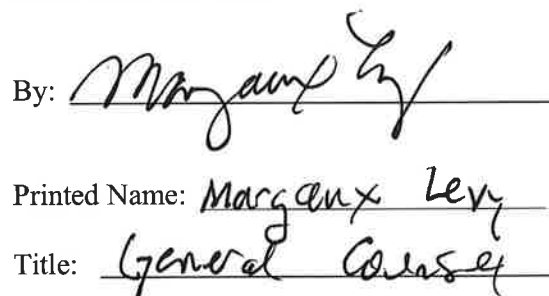 By: Margaux Levy
Printed Name: Margaux Levy
Title: General Counsel